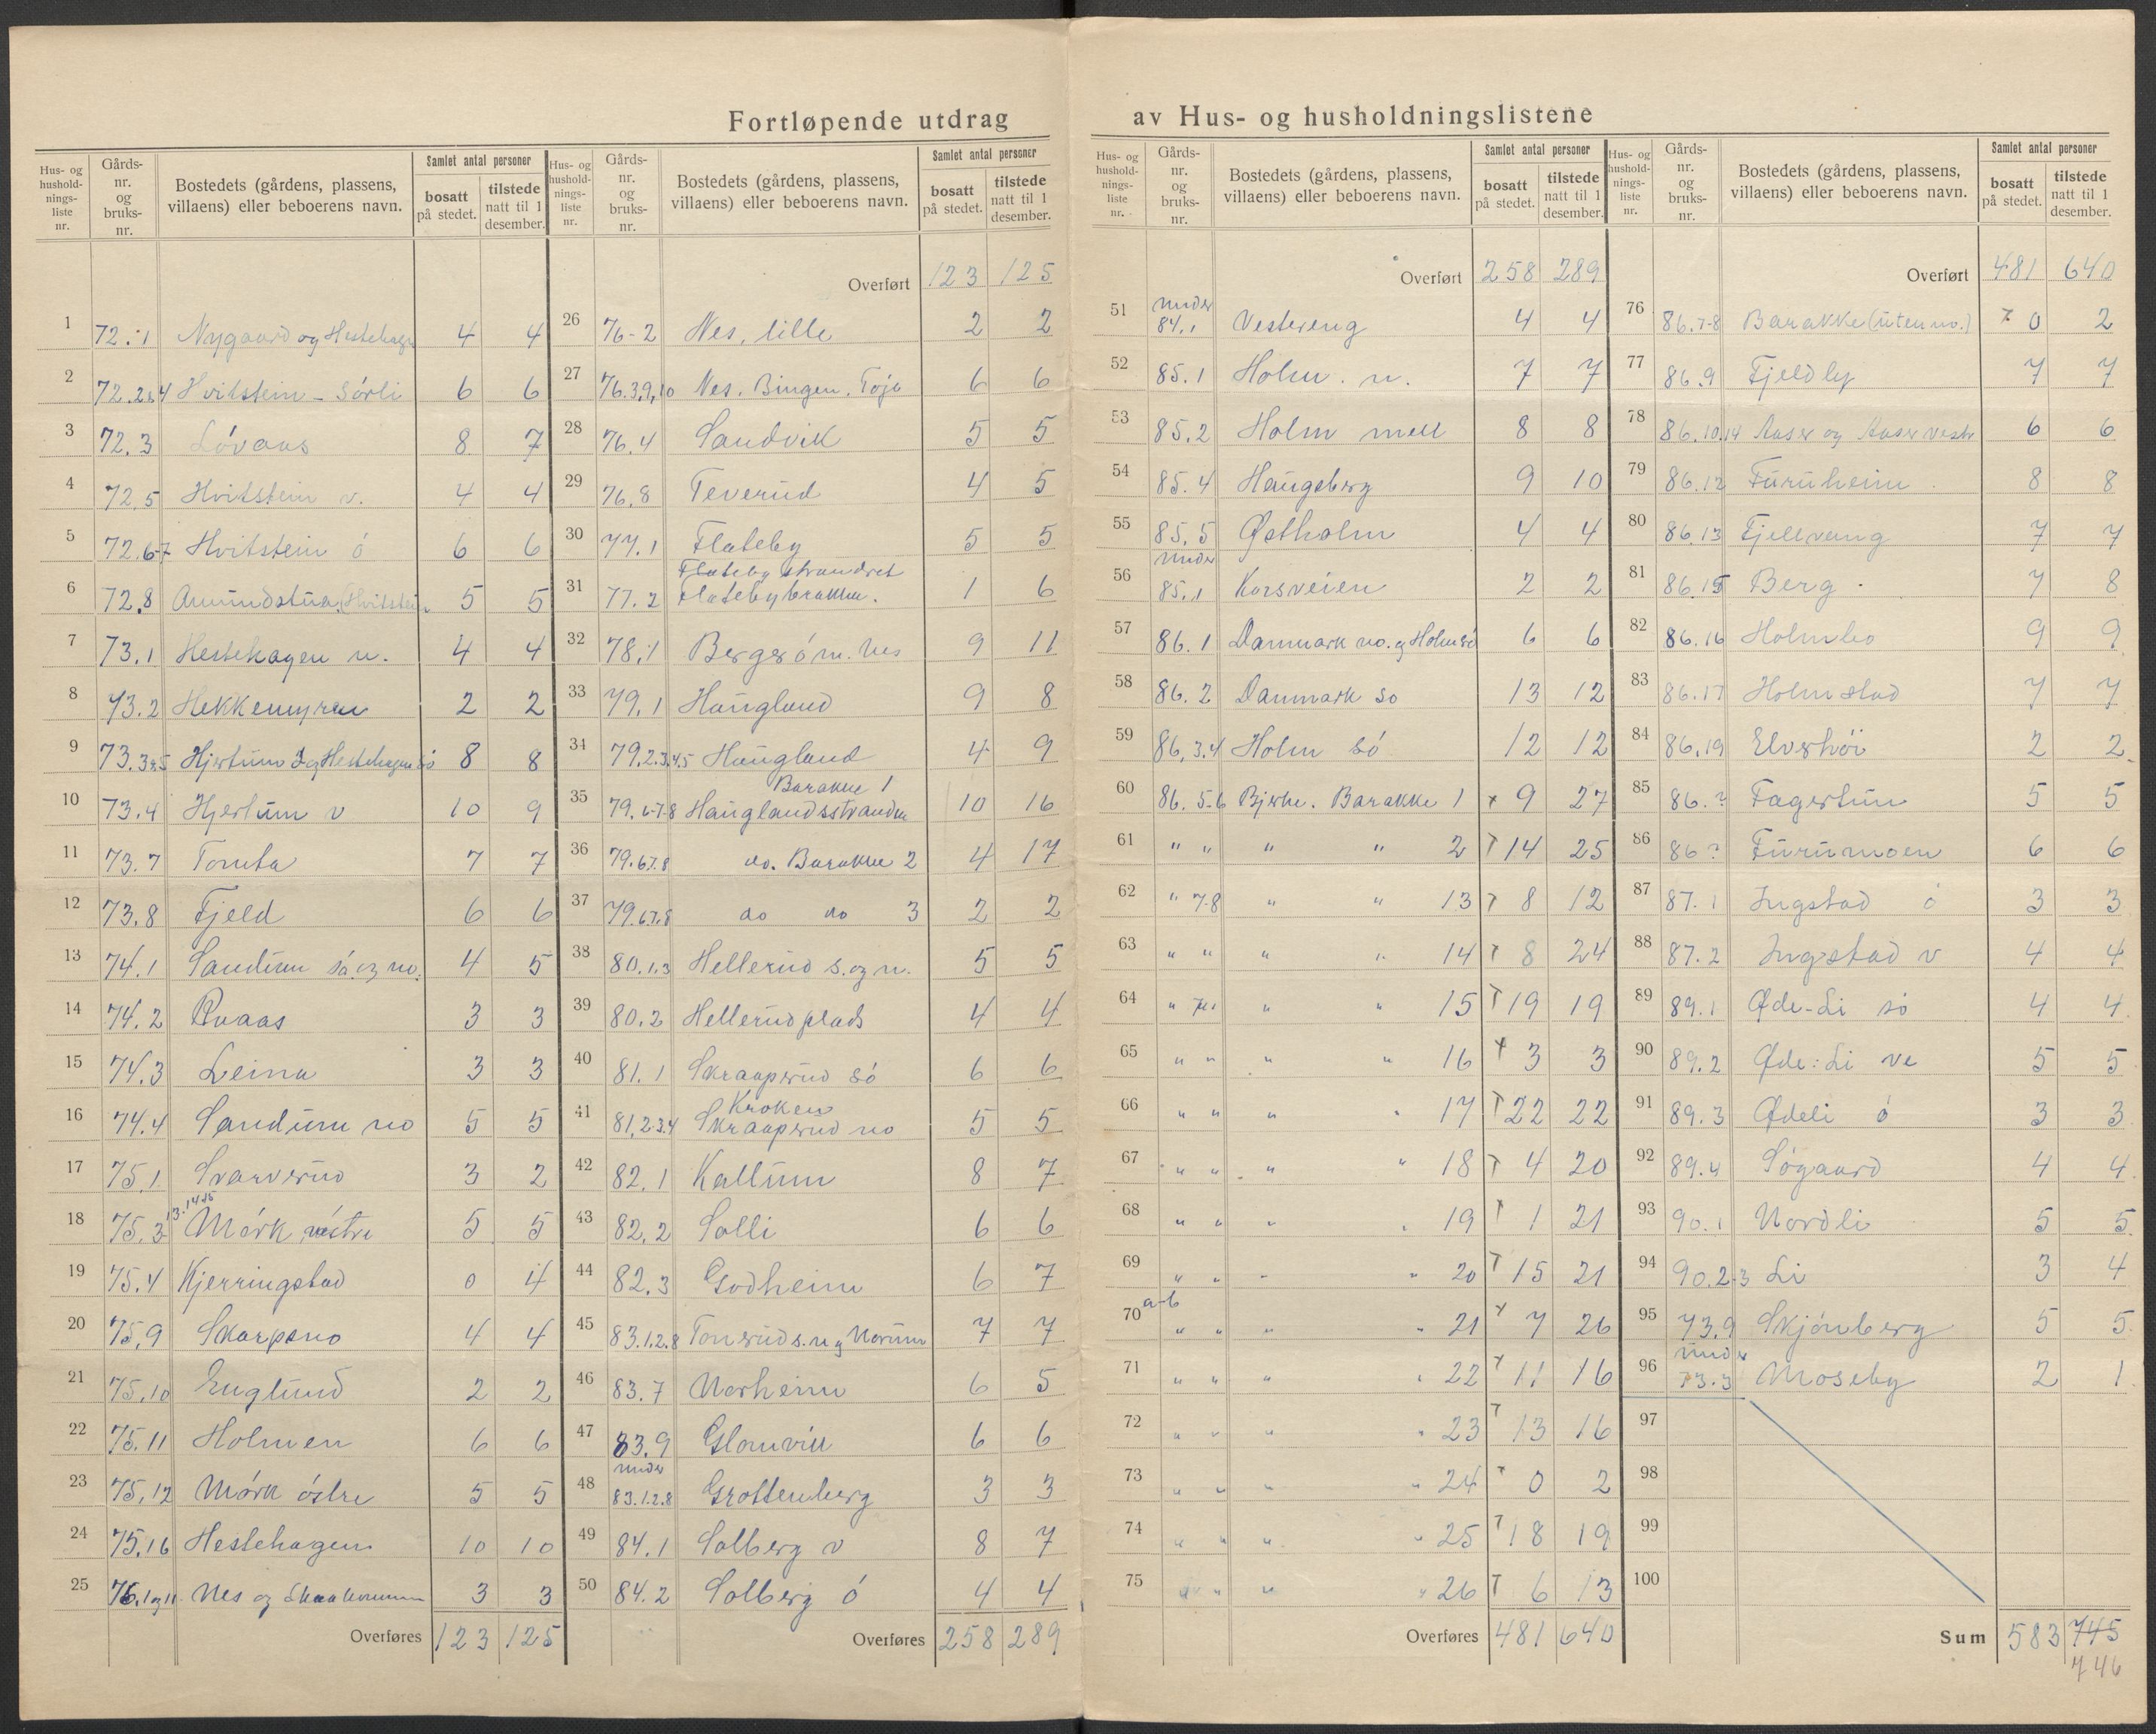 Fortløpende utdrag av Hus- og husholdningslistene
Hus- og hushold-nings-liste nr. Gårds-nr. og bruks-nr. Bostedets (gårdens, plassens, villaens) eller beboerens navn. Samlet antal personer bosatt på stedet. tilstede natt til 1 desember.
1 72.1 Nygaard og Hestehagen 4 4
2 72.2&4 Hvitstein - Sørli 6 6
3 72.3 Løvaas 8 7
4 72.5 Hvitstein v. 4 4
5 72.6-7 Hvitstein ó 6 6
6 72.8 Amundstua, Hvitstein 5 5
7 73.1 Hestehagen n. 4 4
8 73.2 Hekkemyren 2 2
9 73.3&5 Hjertum og Hestehagen só 8 8
10 73.4 Hjertum v 10 9
11 73.7 Tomta 7 7
12 73.8 Fjeld 6 6
13 74.1 Sandum só. og no. 4 5
14 74.2 Braas 3 3
15 74.3 Leina 3 3
16 74.4 Sandum no 5 5
17 75.1 Svarverud 3 2
18 75.3 13.14.15 Mórk véstre 5 5
19 75.4 Kjerringstad 0 4
20 75.9 Skarpsno 4 4
21 75.10 Englund 2 2
22 75.11 Holmen 6 6
23 75.12 Mórk óstre 5 5
24 75.16 Hestehagen 10 10
25 76.1og11 Nes og 3 3
Overføres 123 125
Hus- og hushold-nings-liste nr. Gårds-nr. og bruks-nr. Bostedets (gårdens, plassens, villaens) eller beboerens navn. Samlet antal personer bosatt på stedet. tilstede natt til 1 desember.
Overført 123 125
26 76-2 Nes, lille 2 2
27 76.3,9,10 Nes. Bingen. Toje 6 6
28 76.4 Sandvik 5 5
29 76.8 Teverud 4 5
30 77.1 Flateby 5 5
Flateby strandret
31 77.2 Flatebybrakke. 1 6
32 78.1 Bergsró m. Nes 9 11
33 79.1 Haugland 9 8
34 79.2.3.4.5 Haugland 4 9
Barakke 1
35 79.6-7-8 Hauglandsstranden 10 16
36 79.6.7.8 do. Barakke 2 4 17
37 79.6.7.8 do do 3 2 2
38 80.1.3 Hellerud s. og n. 5 5
39 80.2 Hellerudplads 4 4
40 81.1 Skraaperud só 6 6
Kroken
41 81,2.3.4 Skraaperud no 5 5
42 82.1 Kallum 8 7
43 82.2 Solli 6 6
44 82.3 Godheim 6 7
45 83.1.2.8 Tonerud s. n og Norum 7 7
46 83.7 Norheim 6 5
47 83.9 Glomvik 6 6
under
48 83.1.2.8 Grottenberg 3 3
49 84.1 Solberg v 8 7
50 84.2 Solberg ó 4 4
Overføres 258 289
Hus- og hushold-nings-liste nr. Gårds-nr. og bruks-nr. Bostedets (gårdens, plassens, villaens) eller beboerens navn. Samlet antal personer bosatt på stedet. tilstede natt til 1 desember.
Overført 258 289
under
51 84.1 Vestereng 4 4
52 85.1 Holm. n. 7 7
53 85.2 Holm mell 8 8
54 85.4 Haugsberg 9 10
55 85.5 Østholm 4 4
under
56 85.1 Korsveien 2 2
57 86.1 Danmark no. og Holm só 6 6
58 86.2 Danmark so 13 12
59 86,3.4 Holm só 12 12
60 86.5-6 Bjerke. Barakke 1 x 9 27
61 " " " " 2 x 14 25
62 " 7-8 " " 13 x 8 12
63 " " " " 14 x 8 24
64 " " " 15 x 19 19
65 " " " " 16 x 3 3
66 " " " " 17 x 22 22
67 " " " " 18 x 4 20
68 " " " " 19 x 1 21
69 " " " " 20 x 15 21
70 a-b " " " " 21 x 7 26
71 " " " " 22 x 11 16
72 " " " " 23 x 13 16
73 " " " " 24 x 0 2
74 " " " " 25 x 18 19
75 " " " " 26 x 6 13
Overføres 481 640
Hus- og hushold-nings-liste nr. Gårds-nr. og bruks-nr. Bostedets (gårdens, plassens, villaens) eller beboerens navn. Samlet antal personer bosatt på stedet. tilstede natt til 1 desember.
Overført 481 640
76 86.7-8 Barakke (uten no.) x 0 2
77 86.9 Fjeldly 7 7
78 86.10.14 Aaser og Aaser vestr 6 6
79 86.12 Furuheim 8 8
80 86.13 Fjellvang 7 7
81 86.15 Berg 7 8
82 86.16 Holmbo 9 9
83 86.17 Holmstad 7 7
84 86.19 Elverhói 2 2
85 86.? Fagertun 5 5
86 86? Furumoen 6 6
87 87.1 Ingstad ó 3 3
88 87.2 Ingstad v 4 4
89 89.1 Øde-Li só 4 4
90 89.2 Øde:Li ve 5 5
91 89.3 Ødeli ó 3 3
92 89.4 Sógaard 4 4
93 90.1 Nordli 5 5
94 90.2-3 Li 3 4
95 73.9 Skjónberg 5 5
under
96 73.3 Moseby 2 1
97
98
99
100
Sum 583 745
746